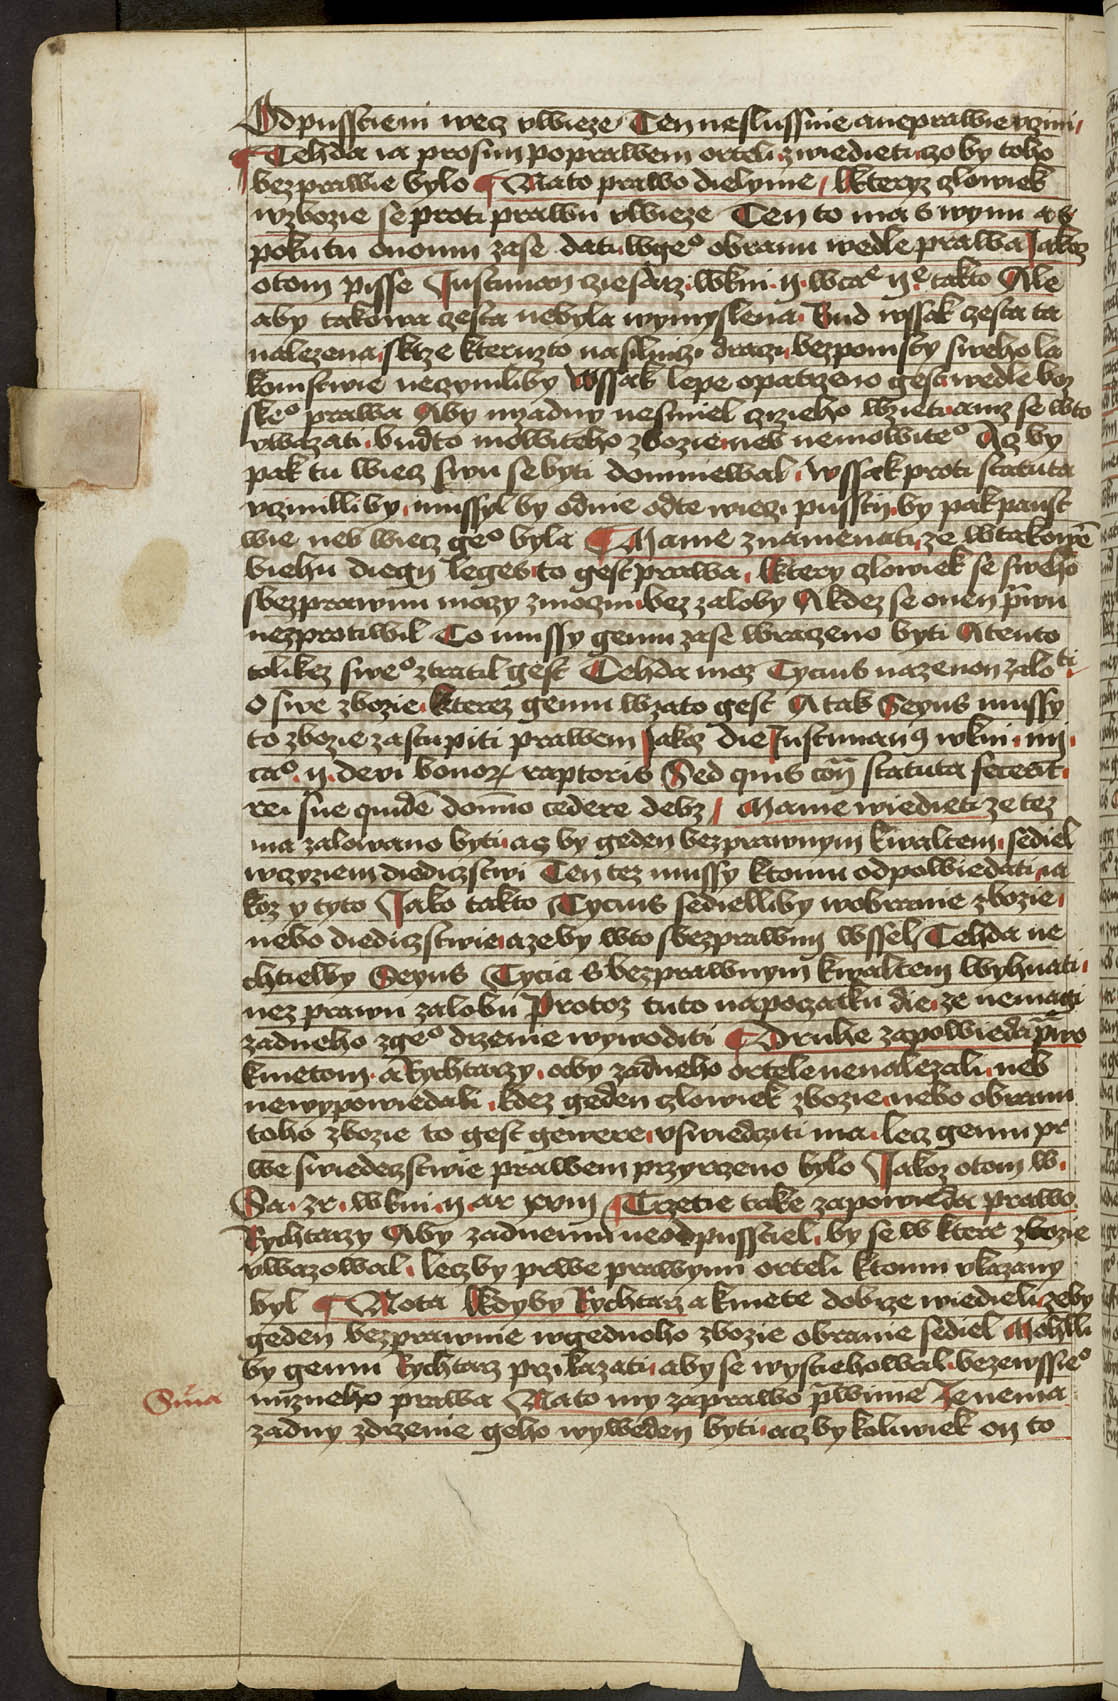 Odpusstieni wecz vwieze Ten neslussnie a neprawie vczini
¶ Tehda ia prosim poprawem orteli zwiedieti czo by toho
bezprawie bylo ¶ Nato prawo dielyme / Kteryz czlowiek
wzbozie se proti prawu vwieze Ten to ma s wynu a s
pokutu onomu zase dati wgeᵒ obranu wedle prawa Jakoz
otom pisse Justinian cziesarz wkni· ii· wcaᵉ iiᵉ takto Ale
aby takowa czesta nebyla wymyslena Bud wssak czesta ta
nalezena skrze kteruzto nasilnicz draczi bezpomsty sweho la
komstwie neczinili by Wssak lepe opatrzeno gest wedle boz
skeᵒ prawa Aby nyzadny nesmiel czizieho wzieti aniz se wto
vwazati budto mowiteho zbozie neb nemowiteᵒ Acz by
pak tu wiecz swu se byti domniewal wssak proti statuta
vczinilli by mussyl by odnie odte wieczi pustiti by pak panst
wie neb wiecz geᵒ byla ¶ Mame znamenati ze wtakowē
biehu diegij leges to gest prawa Ktery czlowiek se sweho
s bezprawnu moczy zmoczni bez zaloby A kdez se onen p̄wu
nezprotiwil To mussy gemu zase wraczeno byti A tento
tolikez sweᵒ ztratil gest Tehda moz Tycius nazenon zaloᵗⁱ
O swe zbozie kterez gemu wzato gest A tak Seyus mussy
to zbozie zastupiti prawem Jakoz die Justinianꝯ wkni· iiij·
caᵒ· ii· de vi bonoꝝ raptoris Sed quis con̄ statuta fecerit
rei sue quidē domīo cedere debꝫ / Mame wiedieti ze tez
ma zalowano byti acz by geden bezprawnym kwaltem sediel
wczyziem diedicztwi Ten tez mussy ktomu odpowiedati ia
koz y tyto Jako takto Tycius sedielliby wobranie zbozie
nebo diedicztwie a zeby wto s bezprawim wssel Tehda ne
chtielby Seyus Tycia s bezprawnym kwaltem wyhnati
nez prawu zalobu Protoz tuto napoczatku die ze nemagi
zadneho zgeᵒ drzenie wywoditi ¶ Druhe zapowieda p̄wo
kmetom a Rychtarzy aby zadneho ortele nenalezali neb
newypowiedali kdez geden czlowiek zbozie nebo obranu
toho zbozie to gest gewere vswiedcziti ma lecz gemu pr
we swiedecztwie prawem przyrczeno bylo Jakoz otom w·
Sa· zr· wkni· ii· ar xviii ¶ Trzetie take zapowieda prawo
Rychtarzy Aby zadnemu neodpusstiel by se w ktere zbozie
vwazowal lecz by prwe prawym orteli ktomu vkazany
byl ¶ Nota Kdyby Rychtarz a kmete dobrze wiedieli zeby
geden bezprawnie wgednoho zbozie obranie sediel Mohlli
by gemu Rychtarz przikazati aby se wystiehowal bezewssieᵒ
nuzneho prawa Nato my za prawo p̄wime Ze nema
Sm̄a
zadny zdrzenie geho wyweden byti acz by koliwiek on to